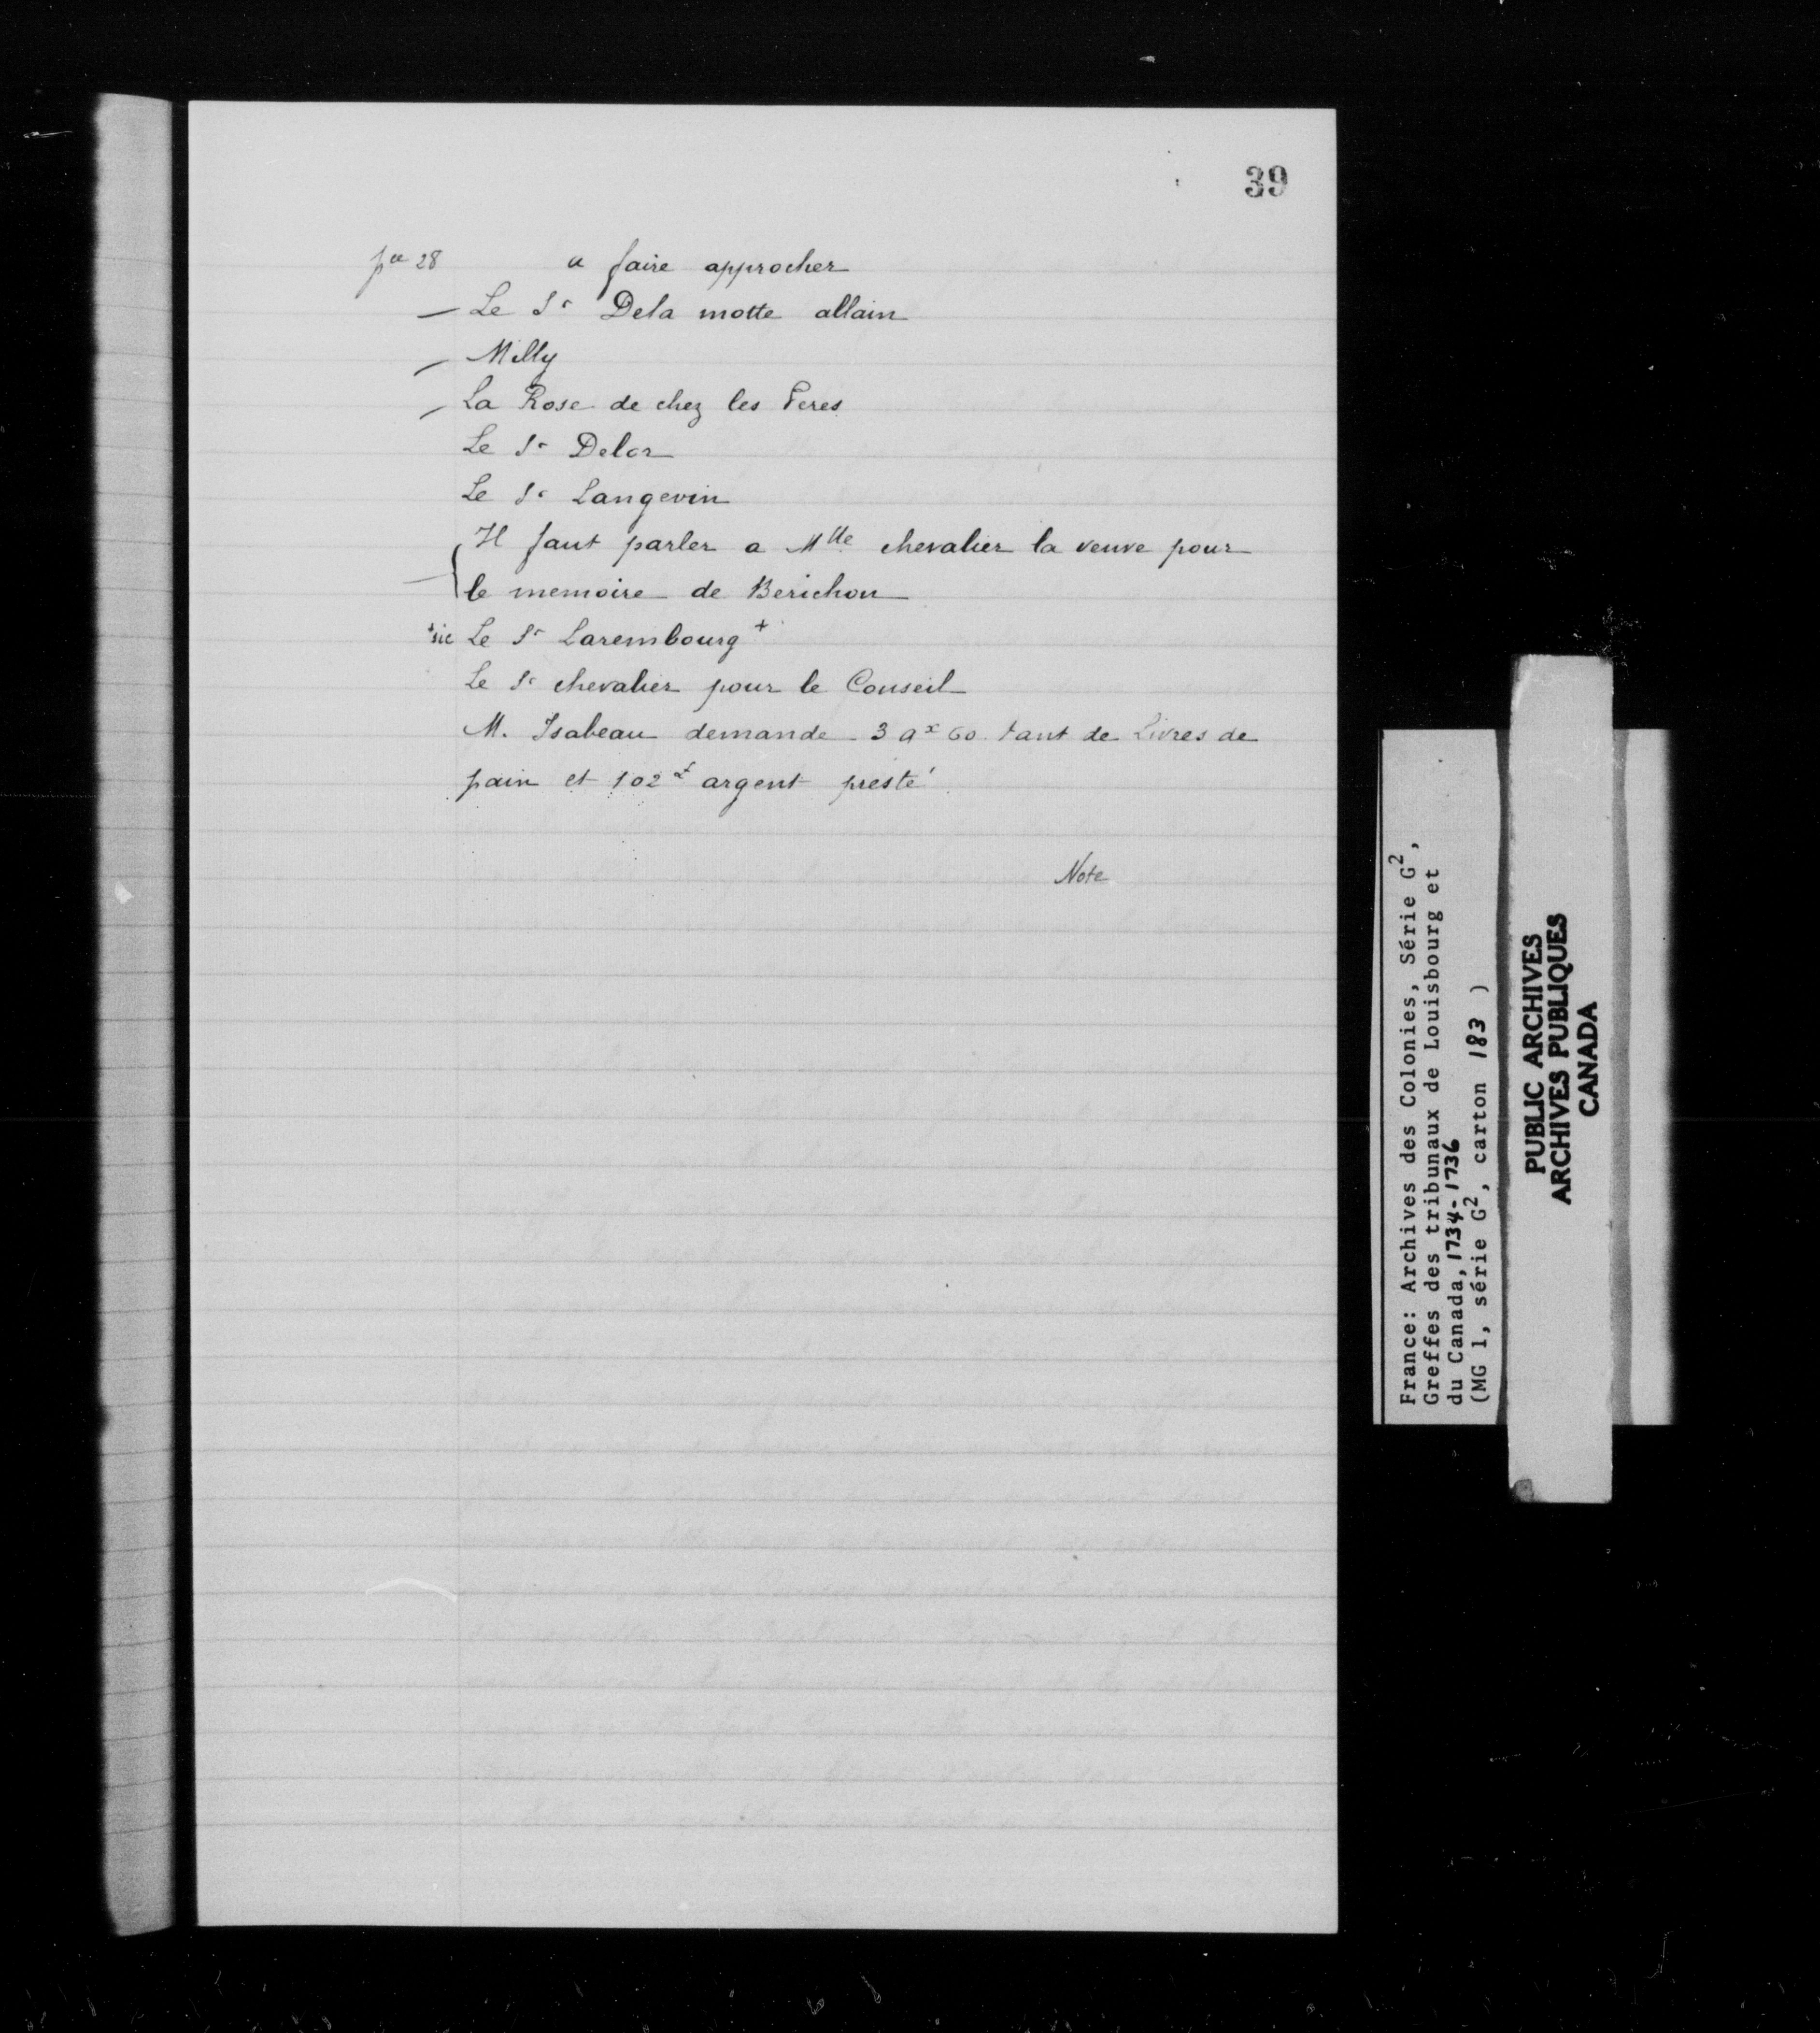 39
pce 28 a faire approcher
— Le Sr Dela motte allain
— Milly
— La Rose de chez les Peres
Le Sr Delor
Le Sr Langevin
Il faut parler a Mlle chevalier la veuve pour
le memoire de Berichon
+sic Le Sr Larembourg+
Le Sr chevalier pour le Conseil
M. Isabeau demande 3 qx 60 tant de Livres de
pain et 102# argent presté
Note
France: Archives des Colonies, Série G2,
Greffes des tribunaux de Louisbourg et
du Canada, 1734-1736
(MG 1, série G2, carton 183 )
PUBLIC ARCHIVES
ARCHIVES PUBLIQUES
CANADA